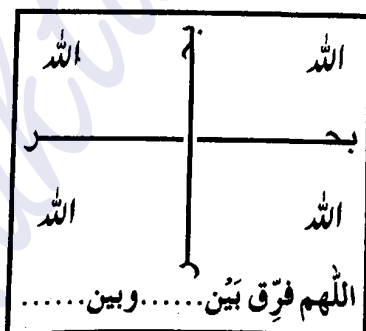 الله الله
بحـــر
الله الله
اللهم فرِّق بَيْن......وبين......